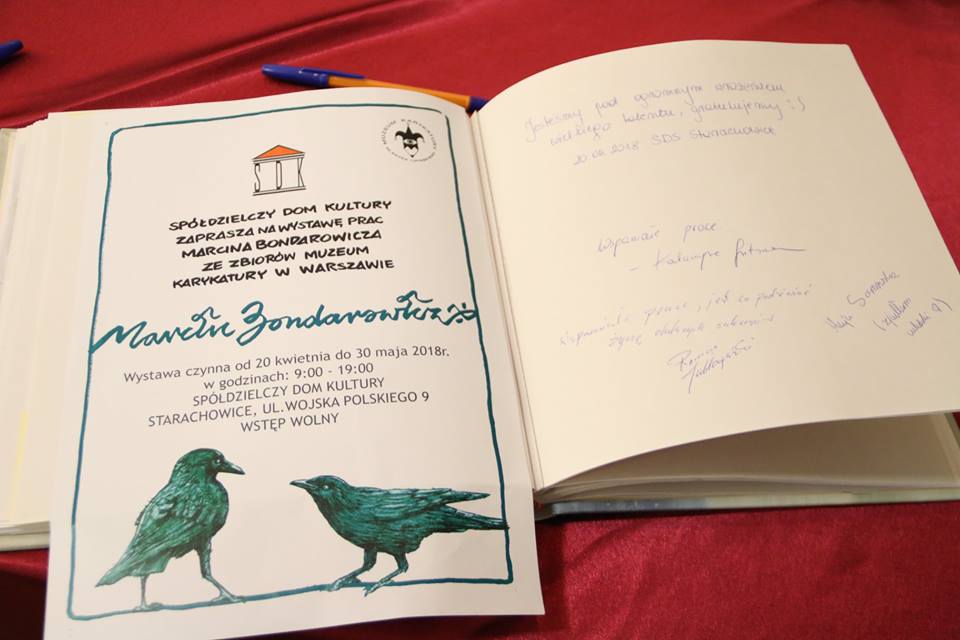 MUZEUM KARYKATURY
SDK
SPÓŁDZIELCZY DOM KULTURY
ZAPRASZA NA WYSTAWĘ PRAC
MARCINA BONDAROWICZA
ZE ZBIORÓW MUZEUM
KARYKATURY W WARSZAWIE
Marcin Bondarowicz
Wystawa czynna od 20 kwietnia do 30 maja 2018r.
w godzinach: 9:00 - 19:00
SPÓŁDZIELCZY DOM KULTURY
STARACHOWICE, UL. WOJSKA POLSKIEGO 9
WSTĘP WOLNY
Jesteśmy pod ogromnym wrażeniem
wielkiego talentu, gratulujemy :)
20.04.2018 SDS Starachowice
Wspaniałe prace
- Katarzyna
Wspaniałe prace, jest co podziwiać
Życzę dalszych sukcesów